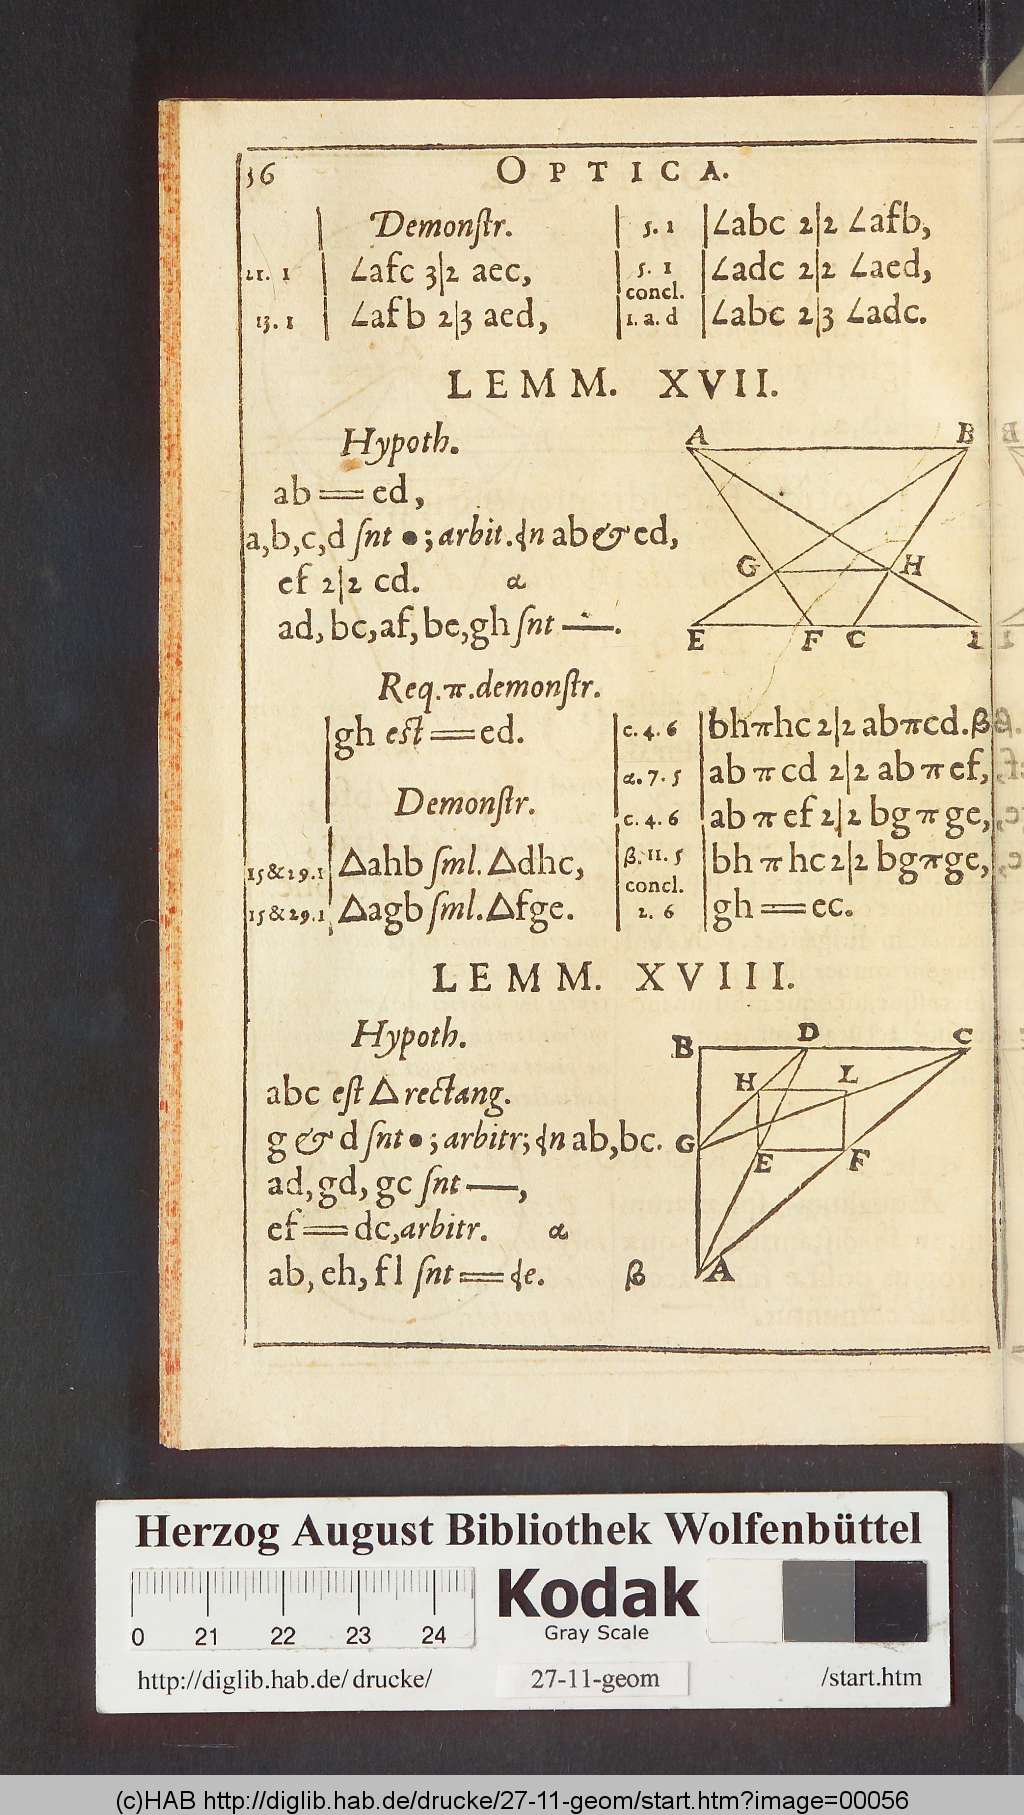 56
OPTICA.
Demonſtr.
21. 1 | ∠afc 3|2 aec,
13. 1 | ∠afb 2|3 aed,
5. 1 | ∠abc 2|2 ∠afb,
5. 1 | ∠adc 2|2 ∠aed,
concl.
1. a. d | ∠abc 2|3 ∠adc.
LEMM. XVII.
Hypoth.
ab == ed,
a,b,c,d ſnt •; arbit. in ab & ed,
ef 2|2 cd. α
ad, bc, af, be, gh ſnt —.
A B
G H
E F C
Req. π. demonſtr.
gh eſt == ed.
Demonſtr.
15 & 29. 1 | △ahb ſml. △dhc,
15 & 29. 1 | △agb ſml. △fge.
c. 4. 6 | bh π hc 2|2 ab π cd. β
α. 7. 5 | ab π cd 2|2 ab π ef,
c. 4. 6 | ab π ef 2|2 bg π ge,
β. 11. 5 | bh π hc 2|2 bg π ge,
concl.
2. 6 | gh == ec.
LEMM. XVIII.
Hypoth.
abc eſt △ rectang.
g & d ſnt •; arbitr; in ab, bc.
ad, gd, gc ſnt —,
ef == dc, arbitr. α
ab, eh, fl ſnt == de. β
B D C
H L
G E F
A
Herzog August Bibliothek Wolfenbüttel
0 21 22 23 24
Kodak
Gray Scale
http://diglib.hab.de/ drucke/ 27-11-geom /start.htm
(c)HAB http://diglib.hab.de/drucke/27-11-geom/start.htm?image=00056